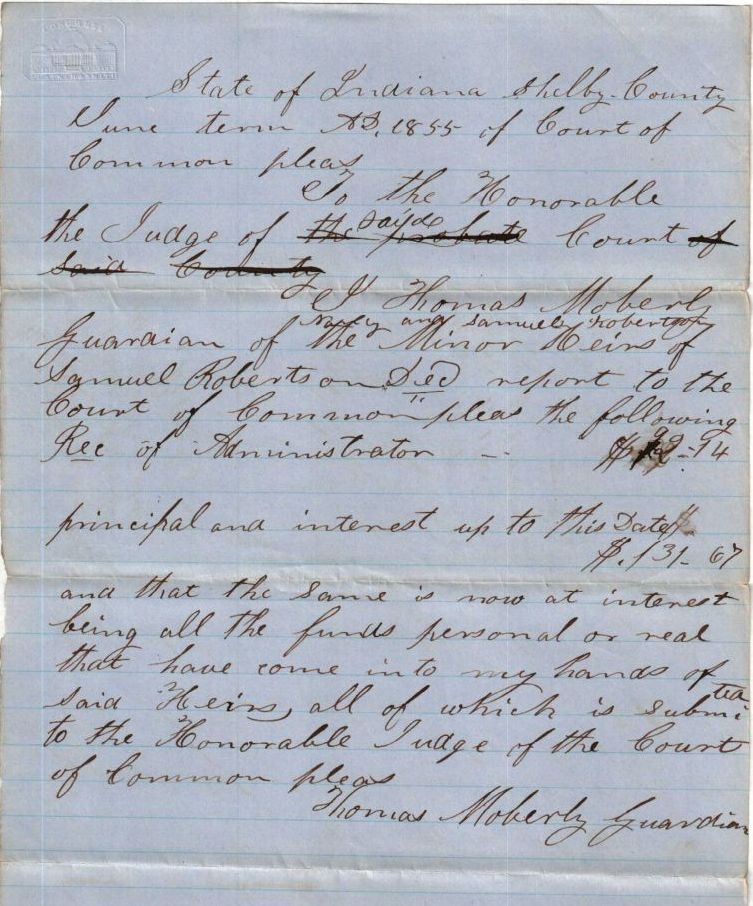 CONGRESS
State of Indiana Shelby County
June term AD, 1855 of Court of
Common pleas
To the Honorable
the Judge of the said probate Court of
said County
I Thomas Moberly
Nancy and Samuel Robertson
Guardian of the Minor Heirs of
Samuel Robertson Decd report to the
Court of Common pleas the following
Rec of Administrator - $ 94
principal and interest up to this Date $
$.131-67
and that the same is now at interest
being all the funds personal or real
that have come into my hands of
said Heirs, all of which is submitted
to the Honorable Judge of the Court
of Common pleas
Thomas Moberly Guardian